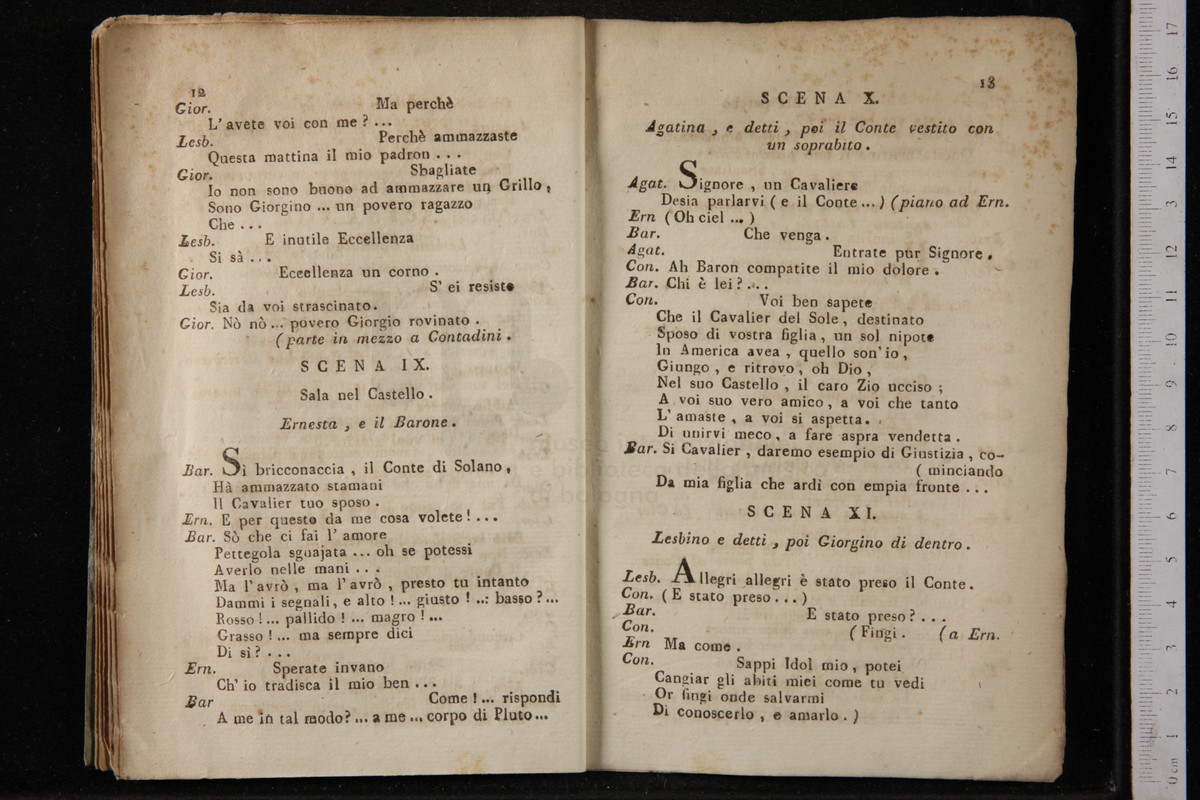 12
Gior. Ma perchè
L' avete voi con me ? ...
Lesb. Perchè ammazzaste
Questa mattina il mio padron . . .
Gior. Sbagliate
Io non sono buono ad ammazzare un Grillo,
Sono Giorgino ... un povero ragazzo
Che . . .
Lesb. E inutile Eccellenza
Si sà . . .
Gior. Eccellenza un corno .
Lesb. S' ei resiste
Sia da voi strascinato.
Gior. Nò nò ... povero Giorgio rovinato .
( parte in mezzo a Contadini .
SCENA IX.
Sala nel Castello .
Ernesta , e il Barone .
Bar. Sì bricconaccia , il Conte di Solano ,
Hà ammazzato stamani
Il Cavalier tuo sposo .
Ern. E per questo da me cosa volete ! ...
Bar. Sò che ci fai l' amore
Pettegola sguajata ... oh se potessi
Averlo nelle mani . . .
Ma l' avrò , ma l' avrò , presto tu intanto
Dammi i segnali, e alto ! ... giusto ! ..: basso ? ...
Rosso ! ... pallido ! ... magro ! ...
Grasso ! ... ma sempre dici
Di sì ? . . .
Ern. Sperate invano
Ch' io tradisca il mio ben . . .
Bar Come ! ... rispondi
A me in tal modo? ... a me ... corpo di Pluto ...
13
SCENA X.
Agatina , e detti , poi il Conte vestito con
un soprabito .
Agat. Signore , un Cavaliere
Desia parlarvi ( e il Conte ... ) (piano ad Ern.
Ern ( Oh ciel ... )
Bar. Che venga .
Agat. Entrate pur Signore .
Con. Ah Baron compatite il mio dolore .
Bar. Chi è lei ? . . .
Con. Voi ben sapete
Che il Cavalier del Sole , destinato
Sposo di vostra figlia , un sol nipote
In America avea , quello son' io ,
Giungo , e ritrovo , oh Dio ,
Nel suo Castello , il caro Zio ucciso ;
A voi suo vero amico , a voi che tanto
L' amaste , a voi si aspetta .
Di unirvi meco , a fare aspra vendetta .
Bar. Si Cavalier , daremo esempio di Giustizia , co-
( minciando
Da mia figlia che ardì con empia fronte . . .
SCENA XI.
Lesbino e detti , poi Giorgino di dentro .
Lesb. Allegri allegri è stato preso il Conte .
Con. ( E stato preso . . . )
Bar. E stato preso ? . . .
Con. ( Fingi . (a Ern.
Ern Ma come .
Con. Sappi Idol mio , potei
Cangiar gli abiti miei come tu vedi
Or fingi onde salvarmi
Di conoscerlo , e amarlo . )
0 cm 1 2 3 4 5 6 7 8 9 10 11 12 13 14 15 16 17